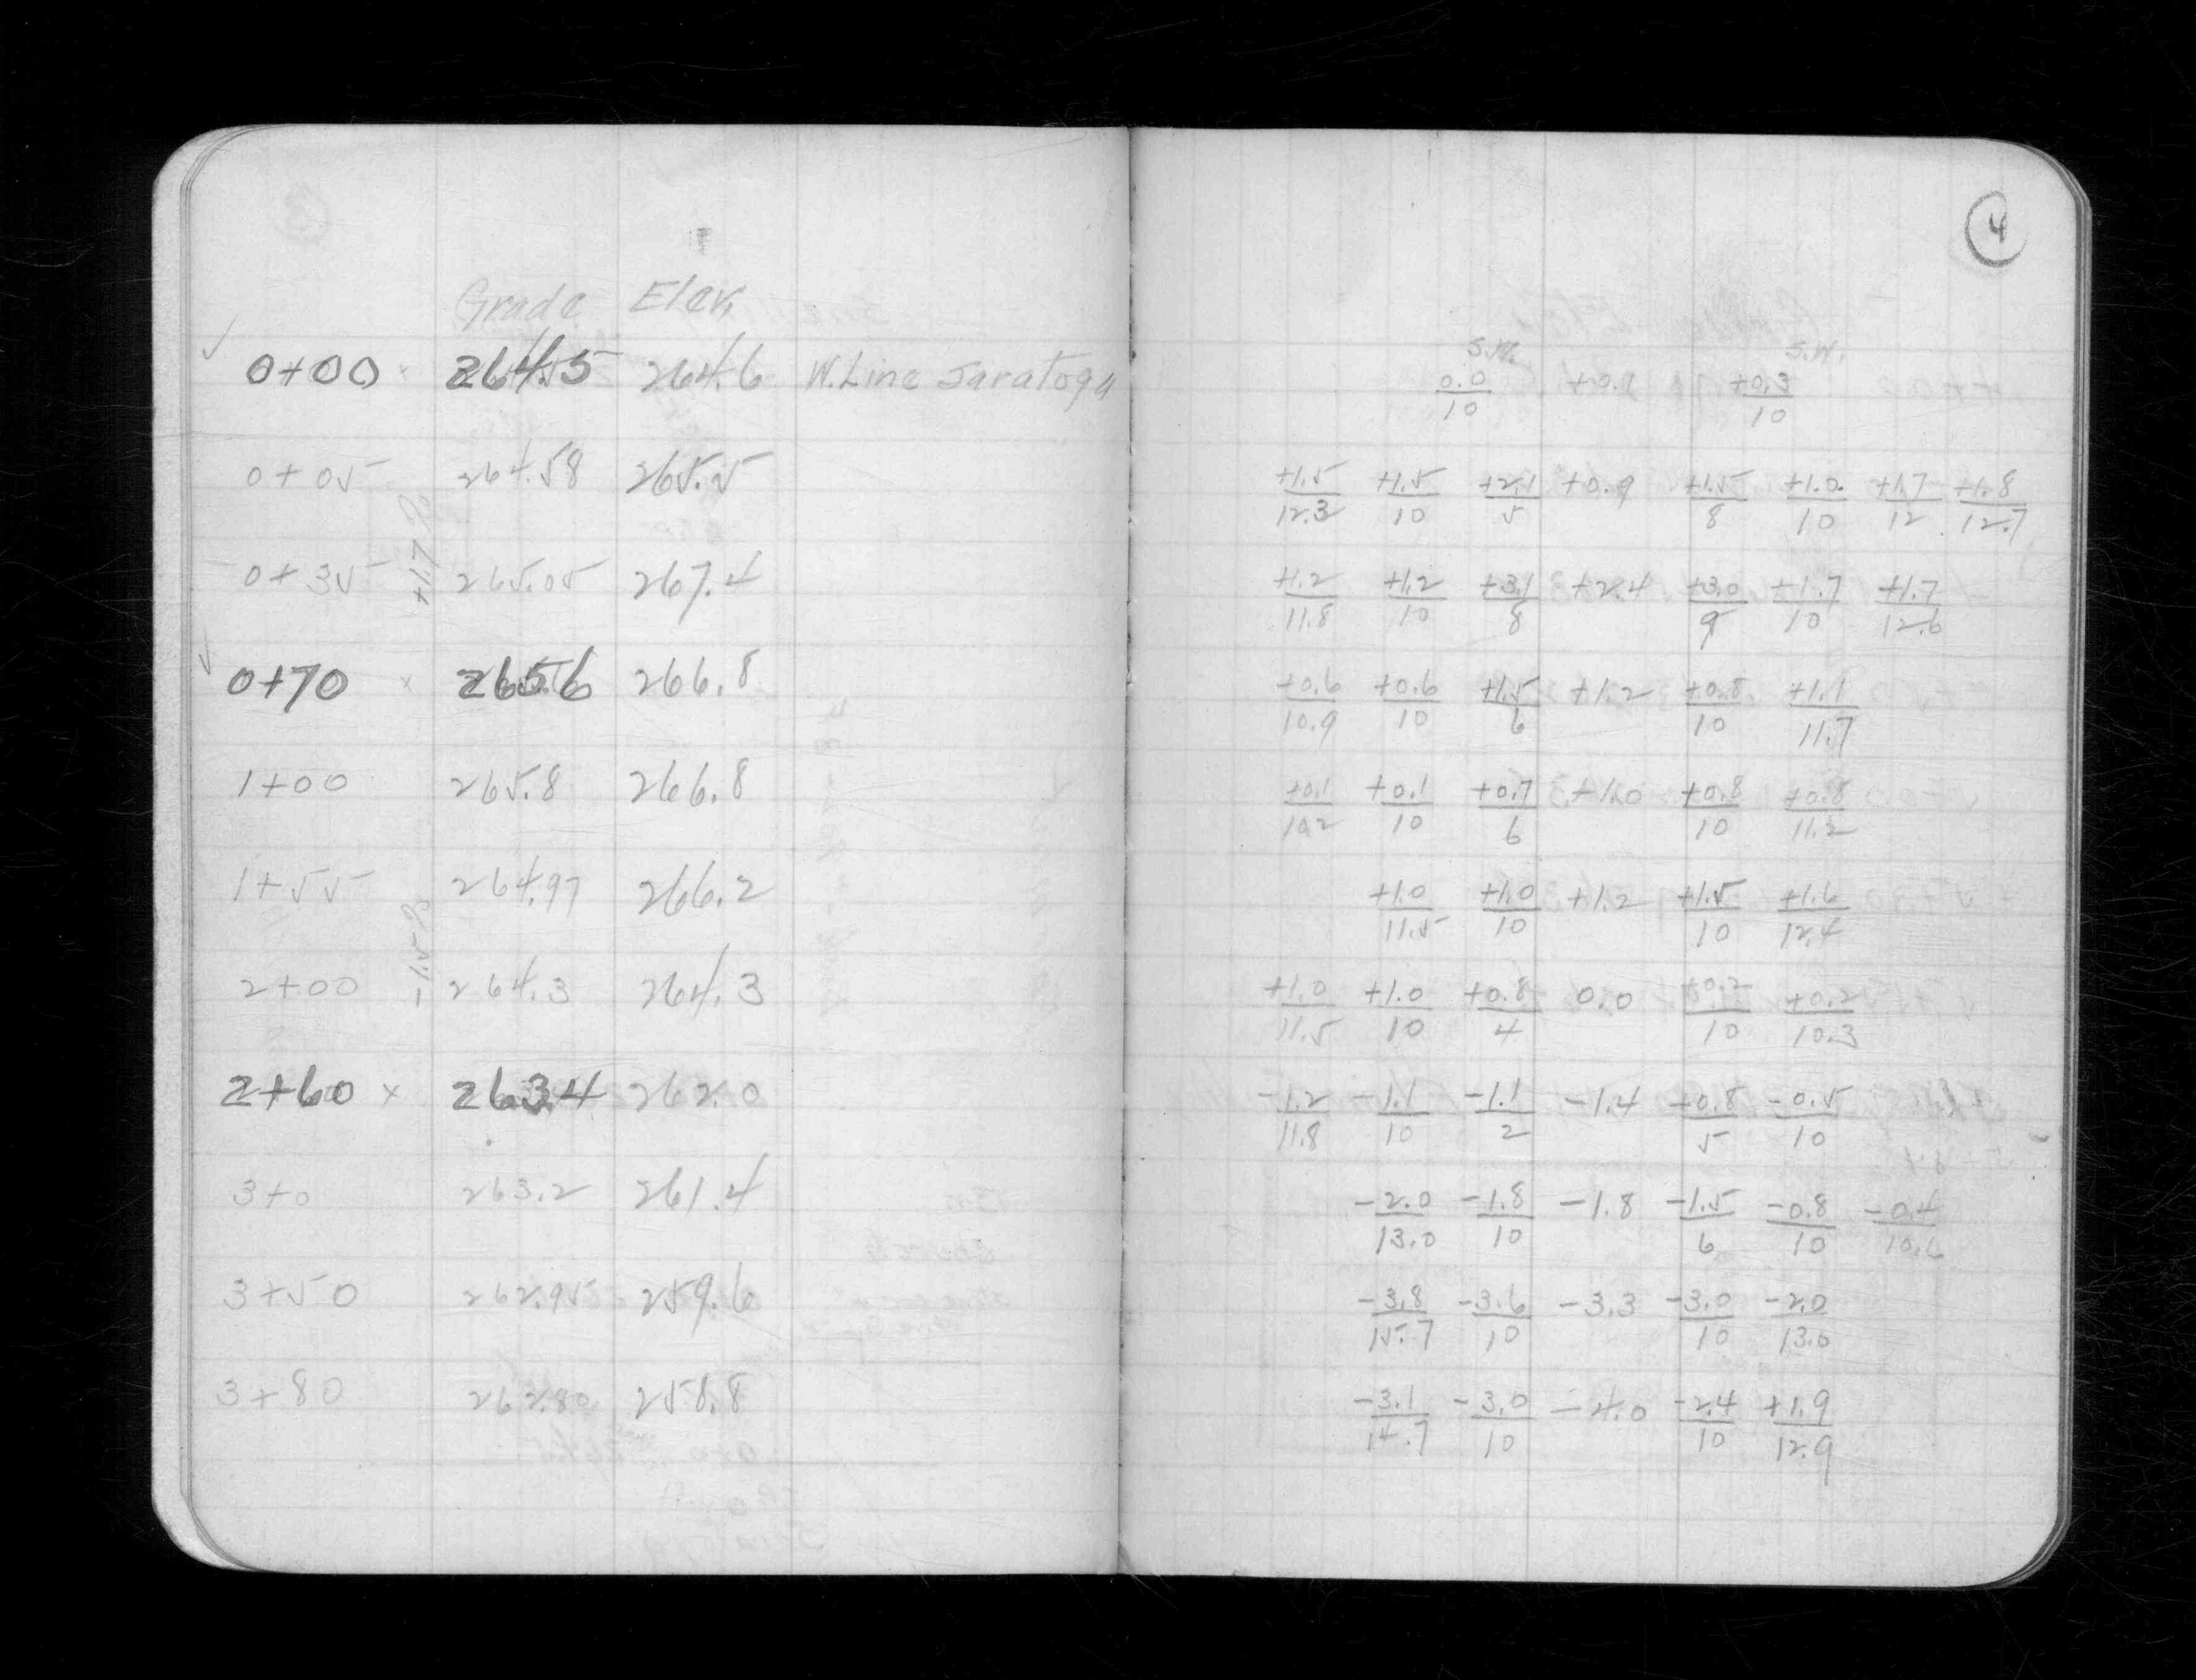 4
Grade Elev.
✓ 0+00 × 264.5 264.6 W. Line Saratoga
0+05 264.58 265.5
+1.7%
0+35 265.05 267.4
✓ 0+70 × 265.6 266.8
1+00 265.8 266.8
1+55 264.97 266.2
-1.5%
2+00 264.3 264.3
2+60 × 263.4 262.0
3+0 263.2 261.4
3+50 262.95 259.6
3+80 262.80 258.8
S.W. S.W.
0.0/10 +0.1 +0.3/10
+1.5/12.3 +1.5/10 +2.1/5 +0.9 +1.5/8 +1.0/10 +1.7/12 +1.8/12.7
+1.2/11.8 +1.2/10 +3.1/8 +2.4 +3.0/9 +1.7/10 +1.7/12.6
+0.6/10.9 +0.6/10 +1.5/6 +1.2 +0.8/10 +1.1/11.7
+0.1/10.2 +0.1/10 +0.7/6 +1.0 +0.8/10 +0.8/11.2
+1.0/11.5 +1.0/10 +1.2 +1.5/10 +1.6/12.4
+1.0/11.5 +1.0/10 +0.8/4 0.0 +0.2/10 +0.2/10.3
-1.2/11.8 -1.1/10 -1.1/2 -1.4 +0.8/5 -0.5/10
-2.0/13.0 -1.8/10 -1.8 -1.5/6 -0.8/10 -0.4/10.6
-3.8/15.7 -3.6/10 -3.3 -3.0/10 -2.0/13.0
-3.1/14.7 -3.0/10 -4.0 -2.4/10 +1.9/12.9